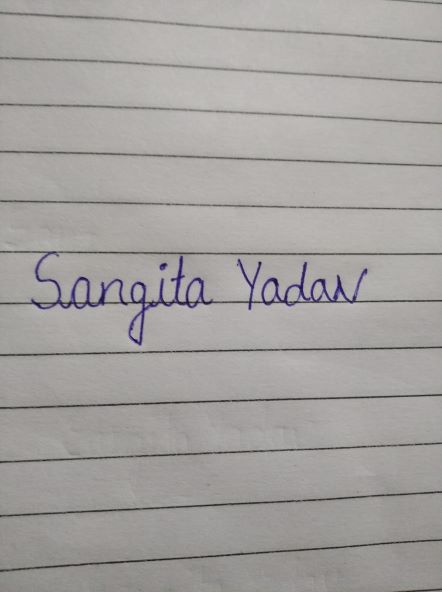 Sangita Yadav